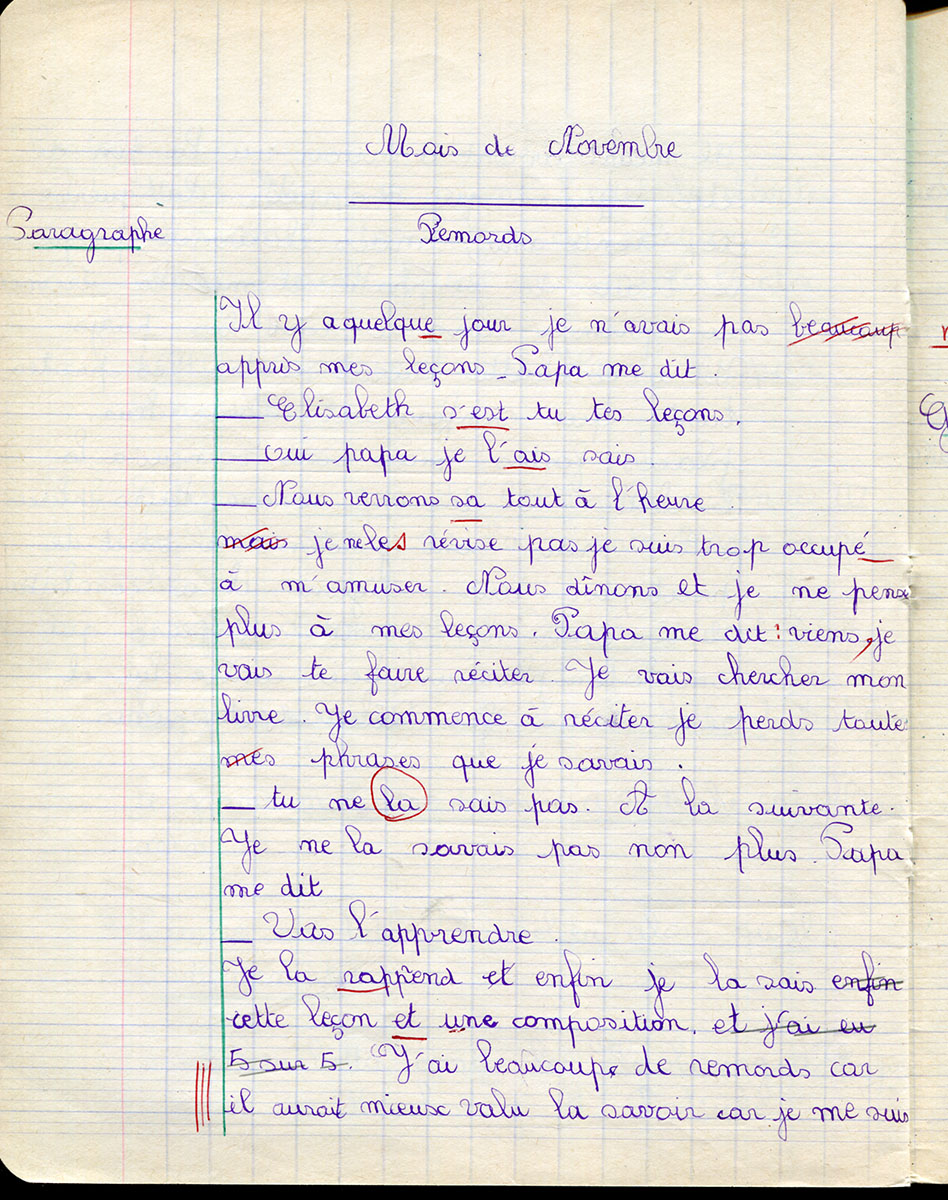 Mois de Novembre
Paragraphe
Remords
Il y a quelque jour je n'avais pas beaucoup
appris mes leçons _ Papa me dit.
— Elisabeth s'est tu tes leçons.
— oui papa je l'ais sais.
— Nous verrons sa tout à l'heure
mais je ne les révise pas je suis trop occupé
à m'amuser. Nous dînons et je ne pense
plus à mes leçons. Papa me dit : viens, je
vais te faire réciter. Je vais chercher mon
livre. Je commence à réciter je perds toute
mes phrases que je savais.
— tu ne la sais pas. A la suivante.
Je ne la savais pas non plus. Papa
me dit
— Vas l'apprendre.
Je la rapprend et enfin je la sais enfin
cette leçon et une composition, et j'ai eu
5 sur 5. J'ai beaucoup de remords car
il aurait mieux valu la savoir car je me suis